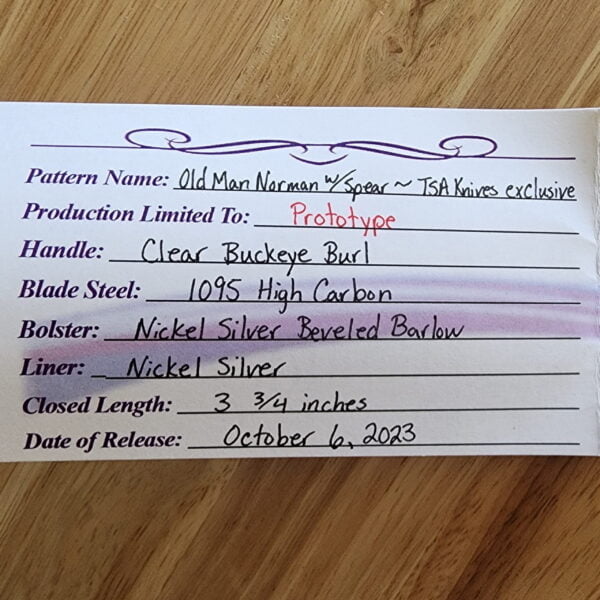 Pattern Name: Old Man Norman w/ Spear ~ TSA Knives exclusive
Production Limited To: Prototype
Handle: Clear Buckeye Burl
Blade Steel: 1095 High Carbon
Bolster: Nickel Silver Beveled Barlow
Liner: Nickel Silver
Closed Length: 3 3/4 inches
Date of Release: October 6, 2023